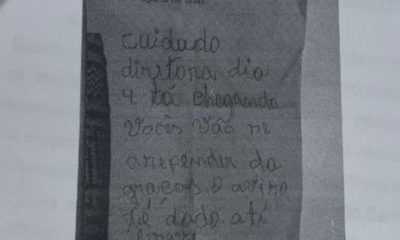 cuidado
diretora dia
4 tá chegando
vocês vão se
arrepender da
graças. O aviso
tá dado até